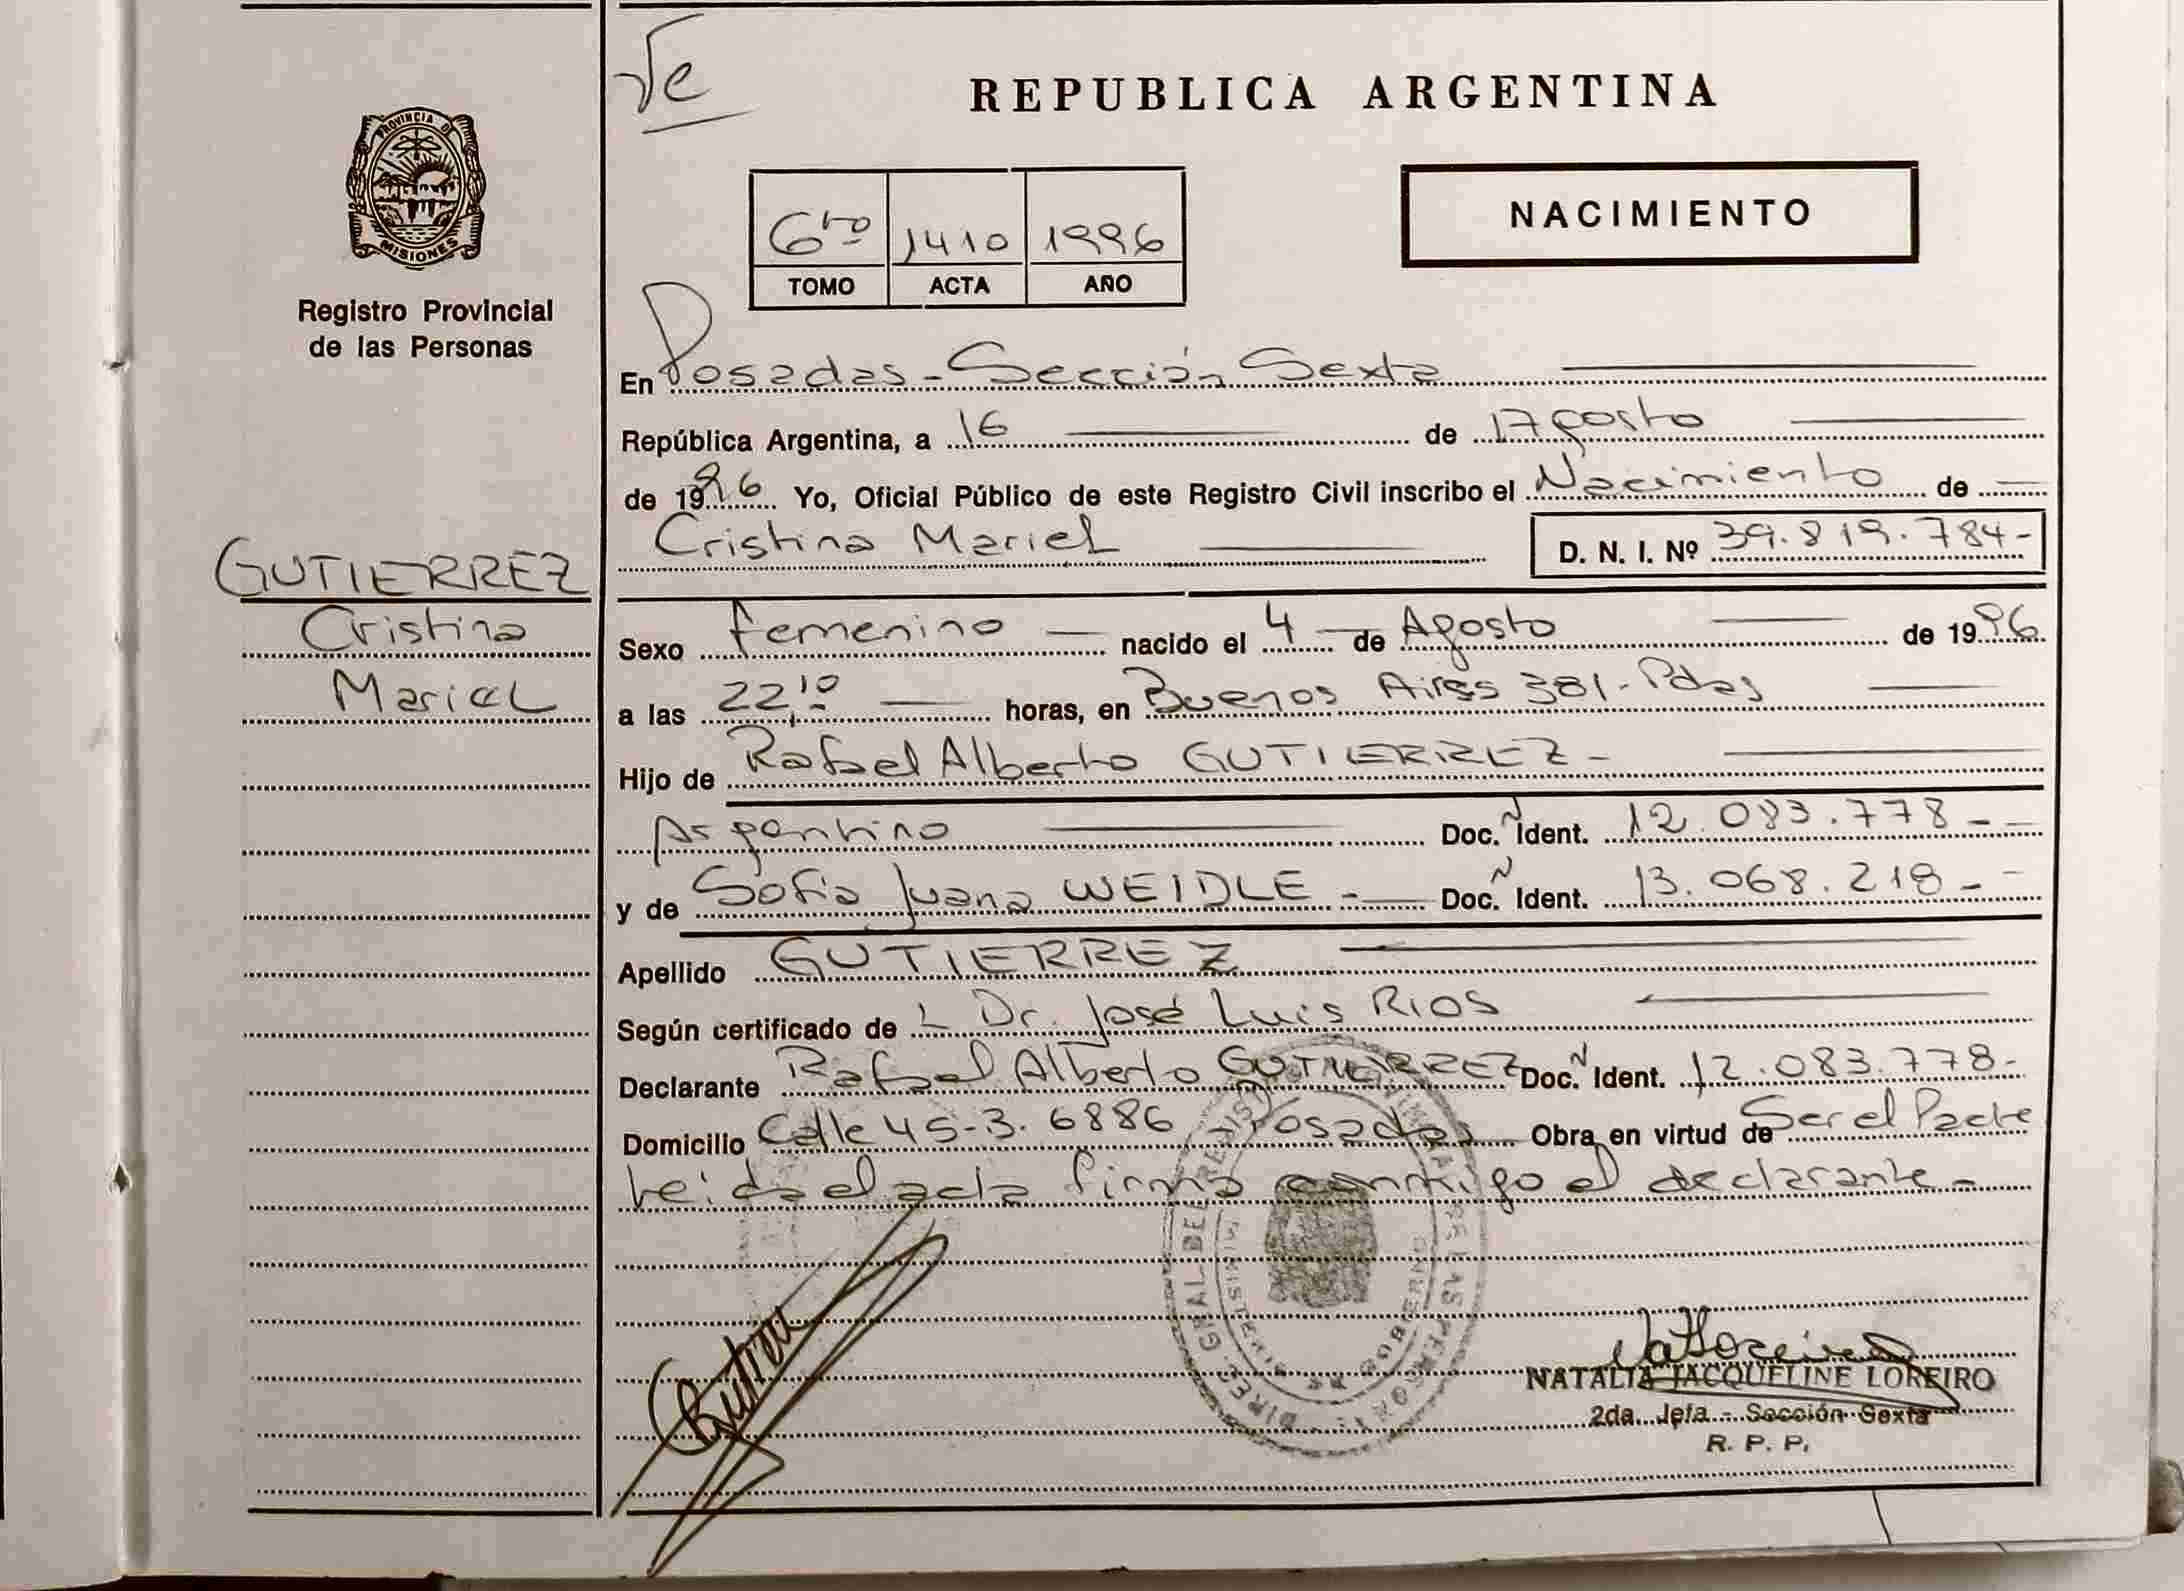 Ve
REPUBLICA ARGENTINA
PROVINCIA DE
MISIONES
Registro Provincial
de las Personas
NACIMIENTO
6to 1410 1996
TOMO ACTA AÑO
En Posadas - Sección Sexta
República Argentina, a 16 de Agosto
de 1996 Yo, Oficial Público de este Registro Civil inscribo el Nacimiento de
Cristina Mariel D. N. I. Nº 39.819.784-
GUTIERREZ
Cristina
Mariel
Sexo femenino nacido el 4 de Agosto de 1996
a las 22,10 horas, en Buenos Aires 381 - Pdas
Hijo de Rafael Alberto GUTIERREZ -
Argentino Doc. N Ident. 12.083.778 -
y de Sofia Juana WEIDLE - Doc. N Ident. 13.068.218 -
Apellido GUTIERREZ
Según certificado de L Dr. José Luis RIOS
Declarante Rafael Alberto GUTIERREZ Doc. N Ident. 12.083.778-
Domicilio Calle 45-3. 6886, Posadas Obra en virtud de Ser el Padre
Leida el acta firma conmigo el declarante -
NATALIA JACQUELINE LOREIRO
2da. Jefa - Sección Sexta
R. P. P.